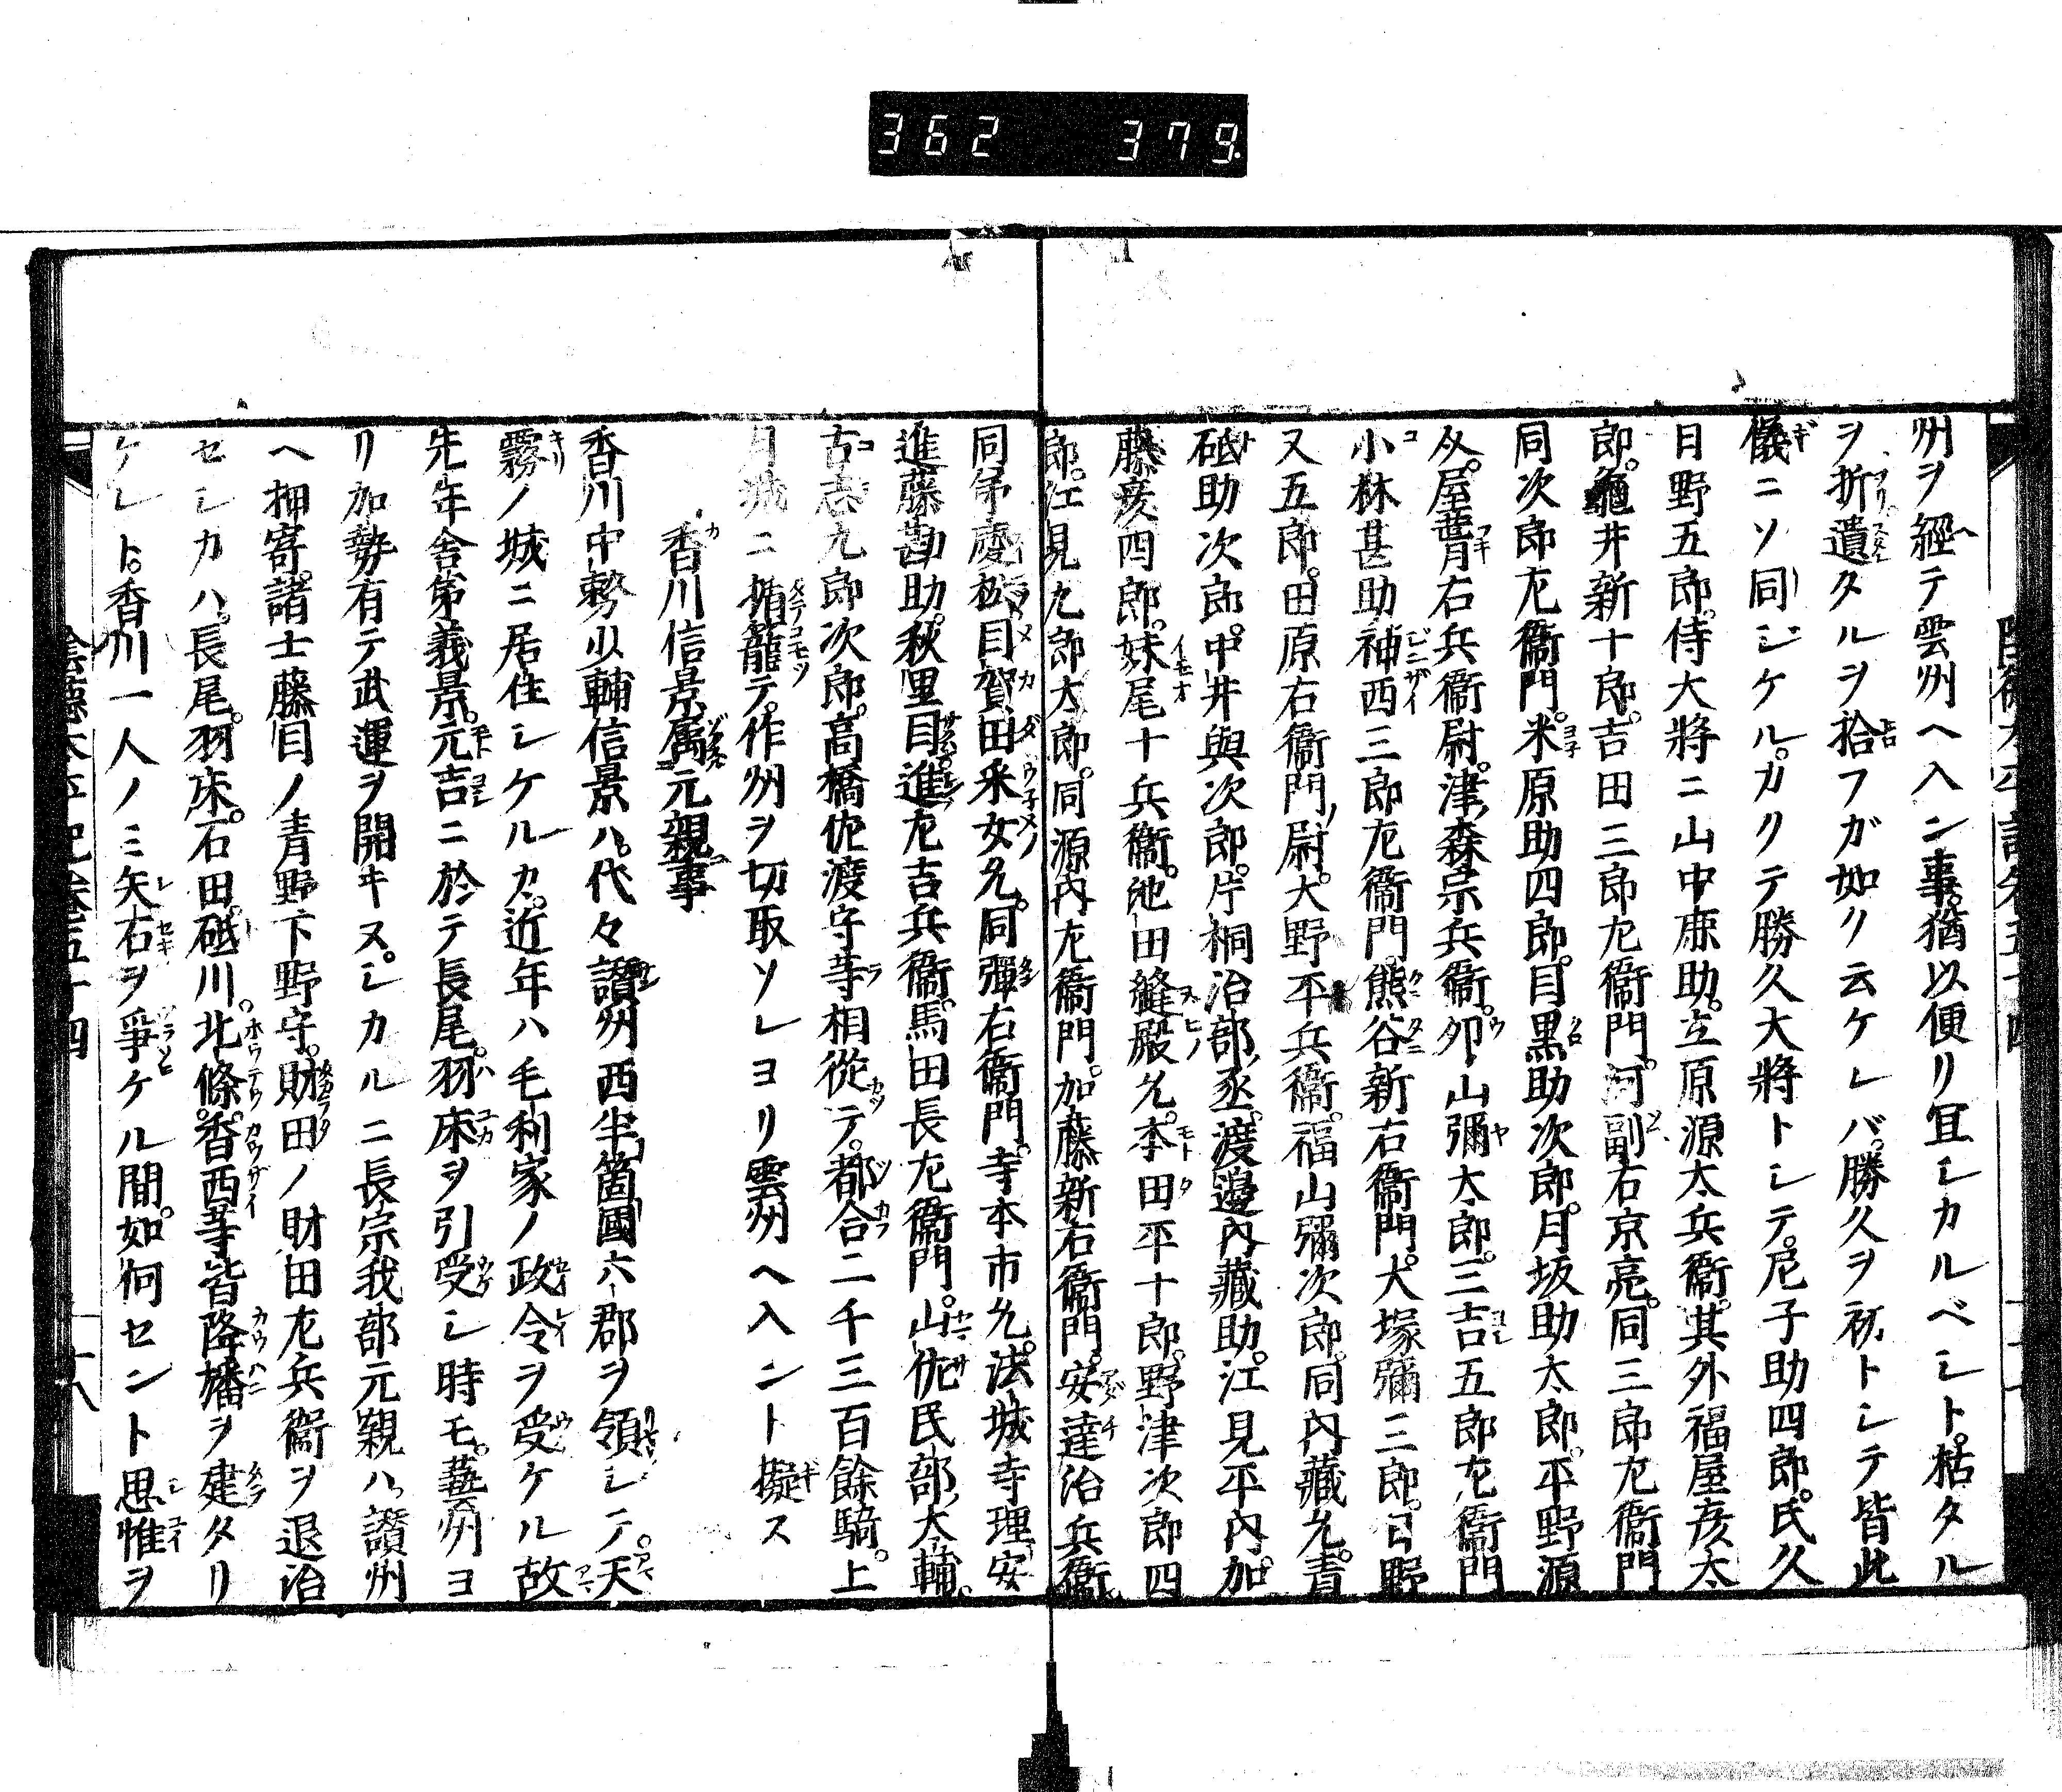 362 379
州ヲ經テ雲州ヘ入ン事。猶以便リ宜シカルベシト。枯タル
ヲ折遺タルヲ拾フガ如ク云ケレバ。勝久ヲ初トシテ皆此
儀ニソ同ジケル。カクテ勝久大將トシテ。尼子助四郎。氏久
目野五郎。侍大將ニ山中鹿助。立原源太兵衞。其外福屋彦太
郎。龜井新十郎。吉田三郎左衞門。河副右京亮。同三郎左衞門
同次郎左衞門。米原助四郎。目黒助次郎。月坂助太郎。平野源
介。屋葺右兵衞尉。津森宗兵衞。卯山彌太郎。三吉五郎左衞門
小林甚助。神西三郎左衞門。熊谷新右衞門。犬塚彌三郎。日野
又五郎。田原右衞門尉。大野平兵衞。福山彌次郎。同内藏允。青
砥助次郎。中井與次郎。片桐治部丞。渡邊内藏助。江見平内。加
藤彦四郎。妹尾十兵衞。池田縫殿允。本田平十郎。野津次郎四
郎。江見九郎太郎。同源内左衞門。加藤新右衞門。安達治兵衞
同弟慶松。目賀田采女允。同彈右衞門。寺本市允。法城寺理安
進藤勘助。秋里目。進左吉兵衞。馬田長左衞門。山佐民部大輔。
古志九郎次郎。高橋佐渡守等相從テ。都合二千三百餘騎。上
月城ニ楯籠テ。作州ヲ切取ソレヨリ雲州ヘ入ント擬ス
香川信景屬元親事
香川中務少輔信景ハ。代々讃州西半箇國六郡ヲ領シテ。天
霧ノ城ニ居住シケルカ。近年ハ毛利家ノ政令ヲ受ケル故
先年舎弟義景。元吉ニ於テ長尾。羽床ヲ引受シ時モ。藝州ヨ
リ加勢有テ武運ヲ開キヌ。シカルニ長宗我部元親ハ。讃州
ヘ押寄。諸士藤目ノ青野下野守。財田ノ財田左兵衞ヲ退治
セシカハ。長尾。羽床。石田。砥川。北條。香西等皆降旛ヲ建タリ
ケレト。香川一人ノミ矢石ヲ爭ケル間。如何セント思惟ヲ
陰德太平記卷五十四
十八